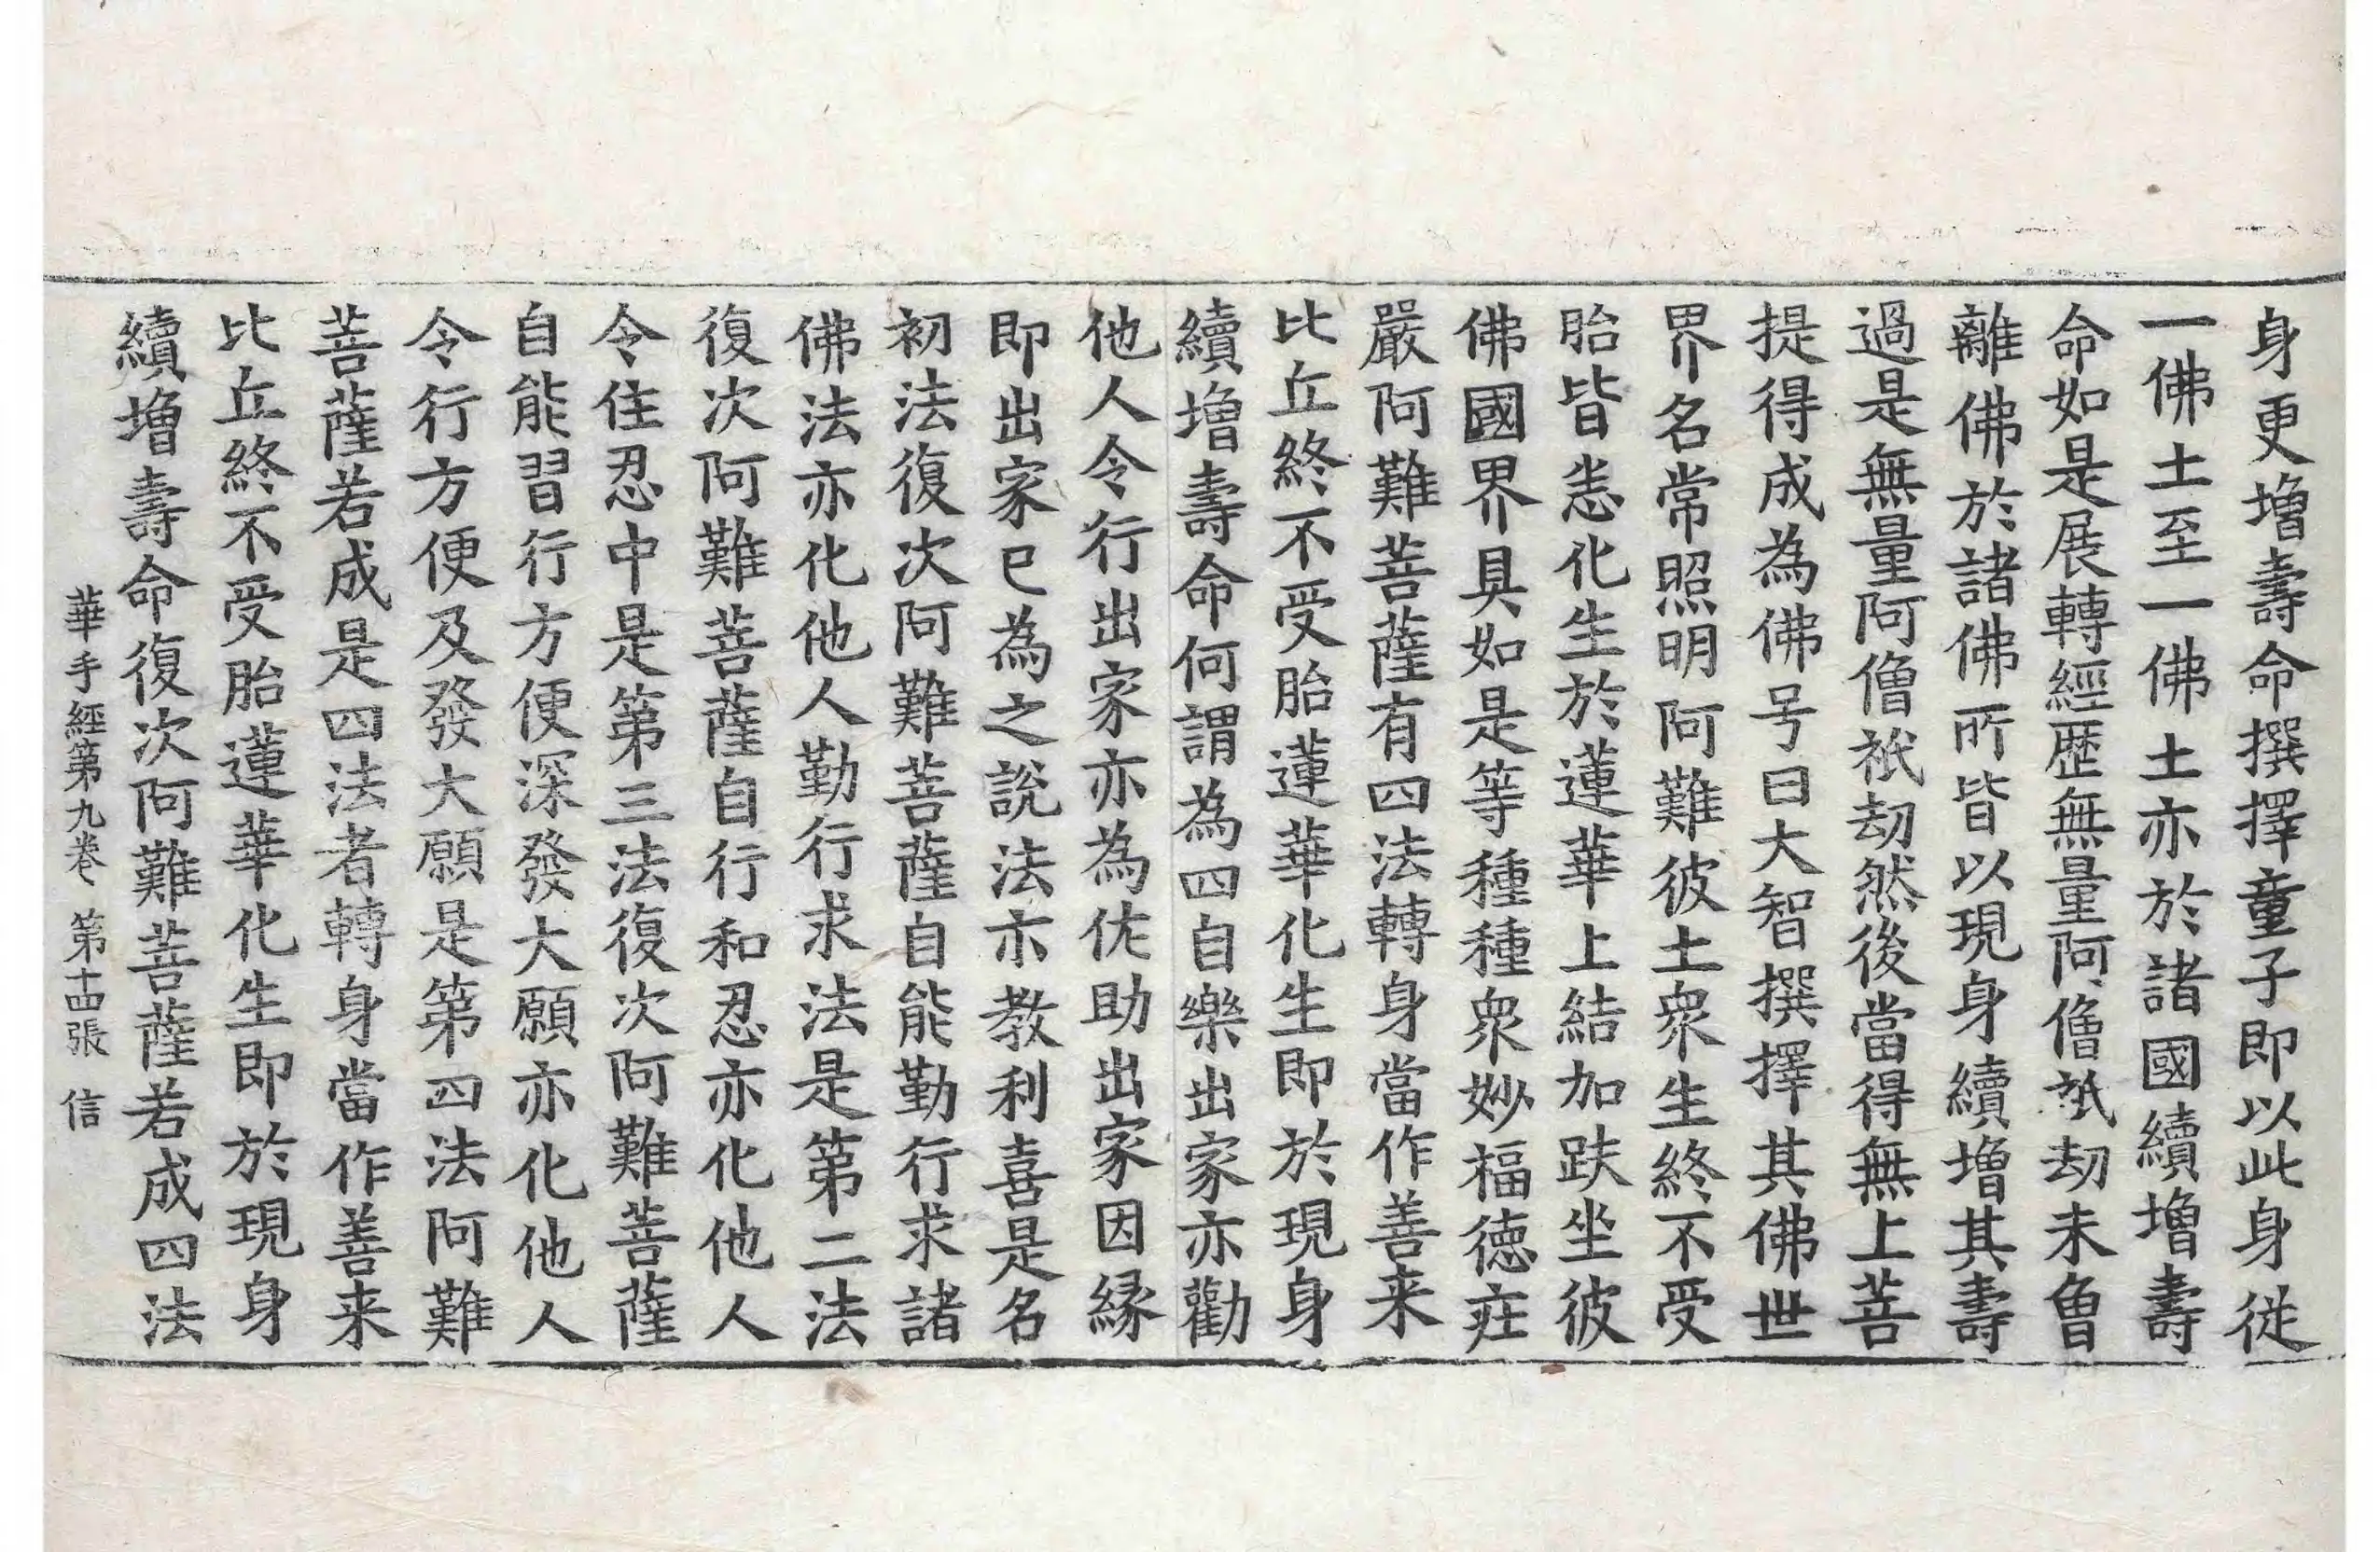 身更增壽命撰擇童子即以此身從
一佛土至一佛土亦於諸國續增壽
命如是展轉經歷無量阿僧祇劫未曾
離佛於諸佛所皆以現身續增其壽
過是無量阿僧祇劫然後當得無上菩
提得成為佛号曰大智撰擇其佛世
界名常照明阿難彼土眾生終不受
胎皆恙化生於蓮華上結加趺坐彼
佛國界具如是等種種眾妙福德莊
嚴阿難菩薩有四法轉身當作善来
比丘終不受胎蓮華化生即於現身
續增壽命何謂為四自樂出家亦勸
他人令行出家亦為佐助出家因緣
即出家已為之說法示教利喜是名
初法復次阿難菩薩自能勤行求諸
佛法亦化他人勤行求法是第二法
復次阿難菩薩自行和忍亦化他人
令住忍中是第三法復次阿難菩薩
自能習行方便深發大願亦化他人
令行方便及發大願是第四法阿難
菩薩若成是四法者轉身當作善来
比丘終不受胎蓮華化生即於現身
續增壽命復次阿難菩薩若成四法
華手經第九卷 第十四張 信